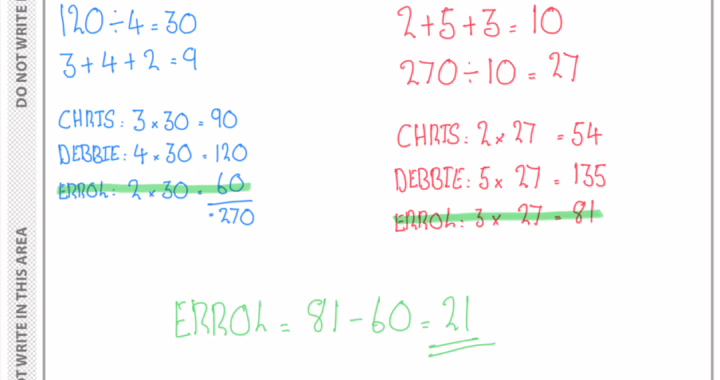 DO NOT WRITE
120 ÷ 4 = 30
3 + 4 + 2 = 9
CHRIS: 3 × 30 = 90
DEBBIE: 4 × 30 = 120
ERROL: 2 × 30 = 60
270
2 + 5 + 3 = 10
270 ÷ 10 = 27
CHRIS: 2 × 27 = 54
DEBBIE: 5 × 27 = 135
ERROL: 3 × 27 = 81
ERROL = 81 - 60 = 21
WRITE IN THIS AREA